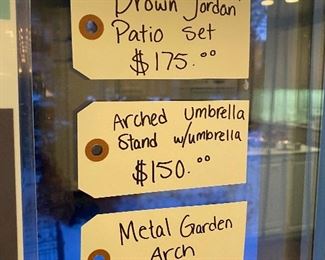 Brown Jordan
Patio Set
$175.00
Arched Umbrella
Stand w/umbrella
$150.00
Metal Garden
Arch